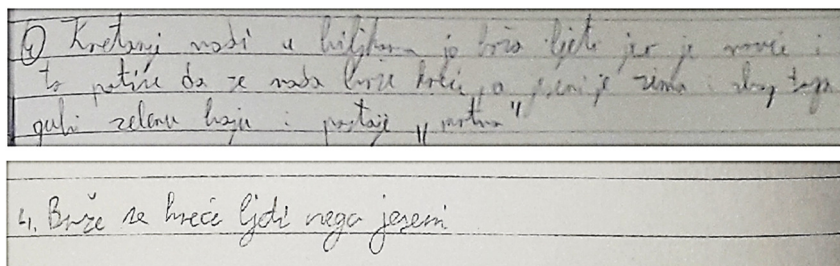 4) Kretanj vodi u biljkama je brža ljeti jer je vruće i
to potiče da se voda brže kreće, a jeseni je zima i zbog toga
gubi zelenu boju i postaje "mrtva"
4. Brže se kreće ljeti nego jeseni